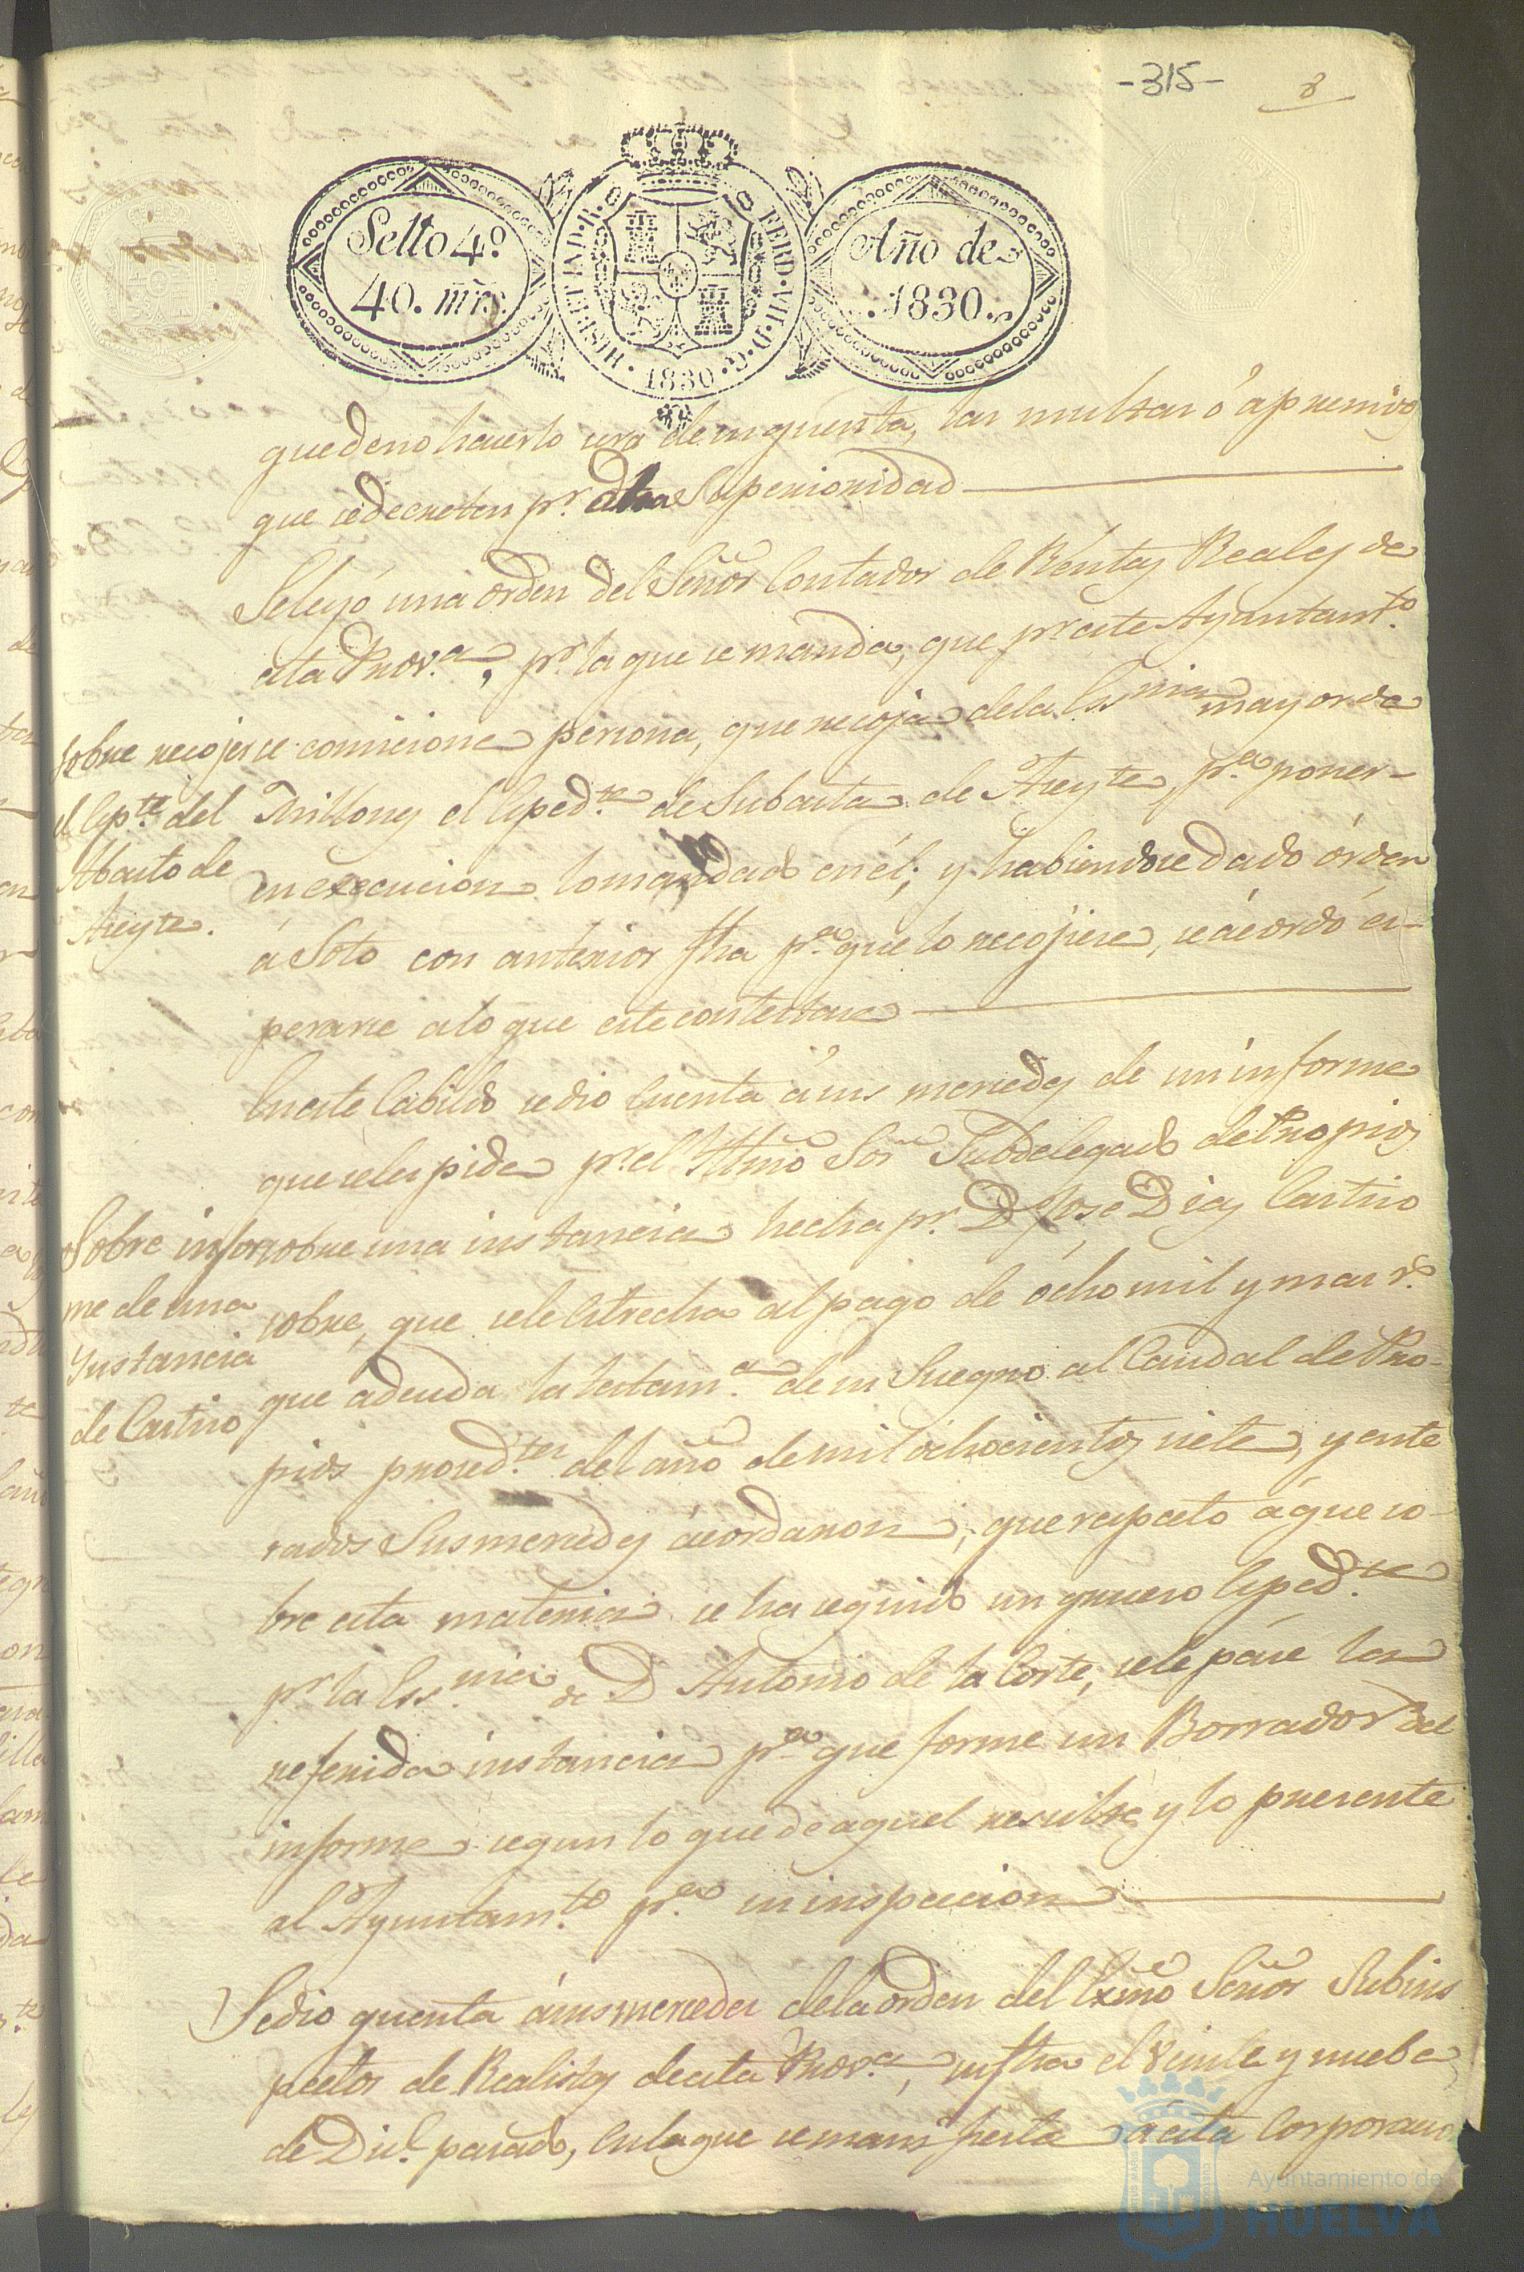 -315-
8
Sello 4º
40. mrs.
HISPETIAD. R. FERD. VII. D. G. 1830
Año de
1830.
que deno hacerlo sera de su quenta, las multas ó apremios
que se decreten pr. dha Superioridad
Se leyó una orden del Señor Contador de Rentas Reales de
esta Prov.a, pr. la que se manda, que pr. este Ayuntam.to
comicione persona, que recoja de la Ess.nia mayor de
Millones el Exped.te de Subasta de Azeyte, p.a poner-
en execucion lo mandado en él; y habiendose dado órden
á Soto con anterior fha p.a que lo recojiese, se acordó es-
perarse a lo que este contestase
Sobre recojerse
el Exp.te del
Abasto de
Azeyte.
En este Cabildo se dio Cuenta á sus mercedes de un informe
que se les pide pr. el Yltmo Sor Subdelegado de Propios
sobre una instancia hecha pr. D Jose Diaz Castro
sobre, que se le Estrecha al pago de ocho mil y mas r.s
que adeuda la testam.a de su Suegro al Caudal de Pro-
pios proced.tes del año de mil ochocientos siete, y ente
rados Sus mercedes acordaron, que respecto á que so-
bre esta materia se ha seguido un grueso Exped.te
pr. la Ess.nia de D Antonio de la Corte, se le pase la
referida instancia p.a que forme un Borrador del
informe segun lo que de aquel resulte, y lo presente
al Ayuntam.to p.a su inspeccion
Sobre infor
me de una
Ynstancia
de Castro
Se dio quenta á sus mercedes de la orden del Exmo Señor Subins
pector de Realistas de esta Prov.a, su fha el veinte y nuebe
de Dic.e pasado, en la que se manifiesta á esta Corporacio
Ayuntamiento de
HUELVA